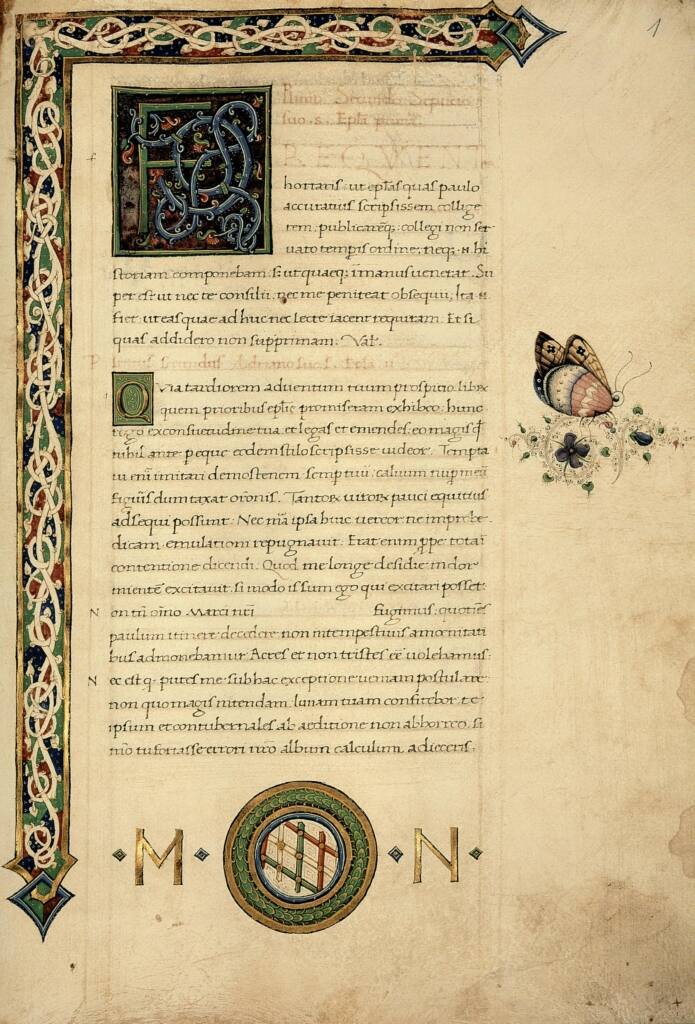 1
Plinius Secundus Septicio
suo .s. Epla prima.
FREQVENT
hortaris: ut eplas quas paulo
accuratius scripsissem collige
rem, publicaremq; collegi non ser
uato temporis ordine, neq; .N. hi
storiam componebam: sed ut quaeq; in manus uenerat. Su
per est ut nec te consilii, nec me peniteat obsequii. Ita .N.
fiet ut eas quae adhuc neclecte iacent requiram. Et si
quas addidero non supprimam. Val.
Plinius Secundus Adriano suo .s. Epla .ii.
Quia tardiorem aduentum tuum prospitio. librum
quem prioribus eplis promiseram exhibeo: hunc
rogo ex consuetudine tua et legas et emendes. eo magis q
nihil ante peque eodem stilo scripsisse uideor. Tempta
ui eni imitari demostenem semp tuu: caluum nup meu
figuris dum taxat oronis. Tantorum uirorum pauci equitius
adsequi possunt. Nec mia ipsa huic uereor ne improbe
dicam emulationi repugnauit. Erat enim ppe tota i
contentione dicendi. Quod me longe desidie indor
mientē excitauit. si modo is sum ego qui excitari posset.
N on tn oino Marci nri fugimus: quotiēs
paulum itinere decedere non intempestiuis amoenitati
bus admonebamur. Acres et non tristes eē uolebamus.
N ec est q putes me sub hac exceptione ueniam postulare
non quo magis intendam. limam tuam confitebor te
ipsum et contubernales ab aeditione non abhorreo. si
mō tu fortasse errori nro album calculum adieceris.
M N